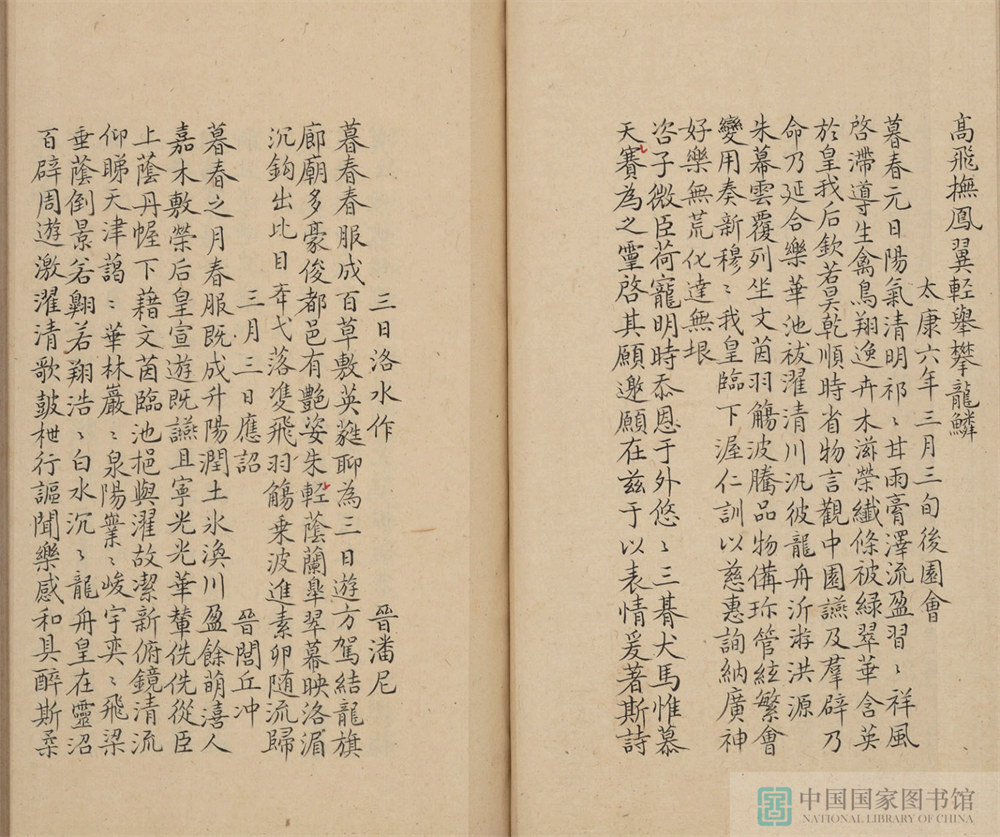 高飛撫鳳翼輕舉攀龍鱗
太康六年三月三旬後園會
暮春元日陽氣清明祁〻甘雨膏澤流盈習〻祥風
啓滯導生禽鳥翔逸卉木滋榮纖條被綠翠華含英
於皇我后欽若昊乾順時省物言觀中園讌及羣辟乃
命乃延合樂華池祓濯清川汎彼龍舟沂游洪源
朱幕雲覆列坐文茵羽觴波騰品物備珎管絃繁會
變用奏新穆〻我皇臨下渥仁訓以慈惠詢納廣神
好樂無荒化達無垠
咨予微臣荷寵明時忝恩于外悠〻三朞犬馬惟慕
天賽為之靈啓其願邀願在兹于以表情爰著斯詩
三日洛水作 晉潘尼
暮春春服成百草敷英蕤聊為三日遊方駕結龍旗
廊廟多豪俊都邑有艷姿朱輕蔭蘭臯翠幕映洛湄
沉鈎出比目弋落雙飛羽觴乗波進素卵随流歸
三月三日應詔 晉閭丘冲
暮春之月春服既成升陽潤土氷渙川盈餘萌濤人
嘉木敷榮后皇宣遊既讌且寧光光華輦侁侁從臣
上蔭丹幄下藉文茵臨池挹與濯故潔新俯鏡清流
仰睇天津藹〻華林巖〻泉陽業〻峻宇奕〻飛梁
垂蔭倒景若翺若翔浩〻白水沉〻龍舟皇在靈沼
百辟周遊激濯清歌鼓枻行謳聞樂感和具醉斯柔
中国国家图书馆
NATIONAL LIBRARY OF CHINA